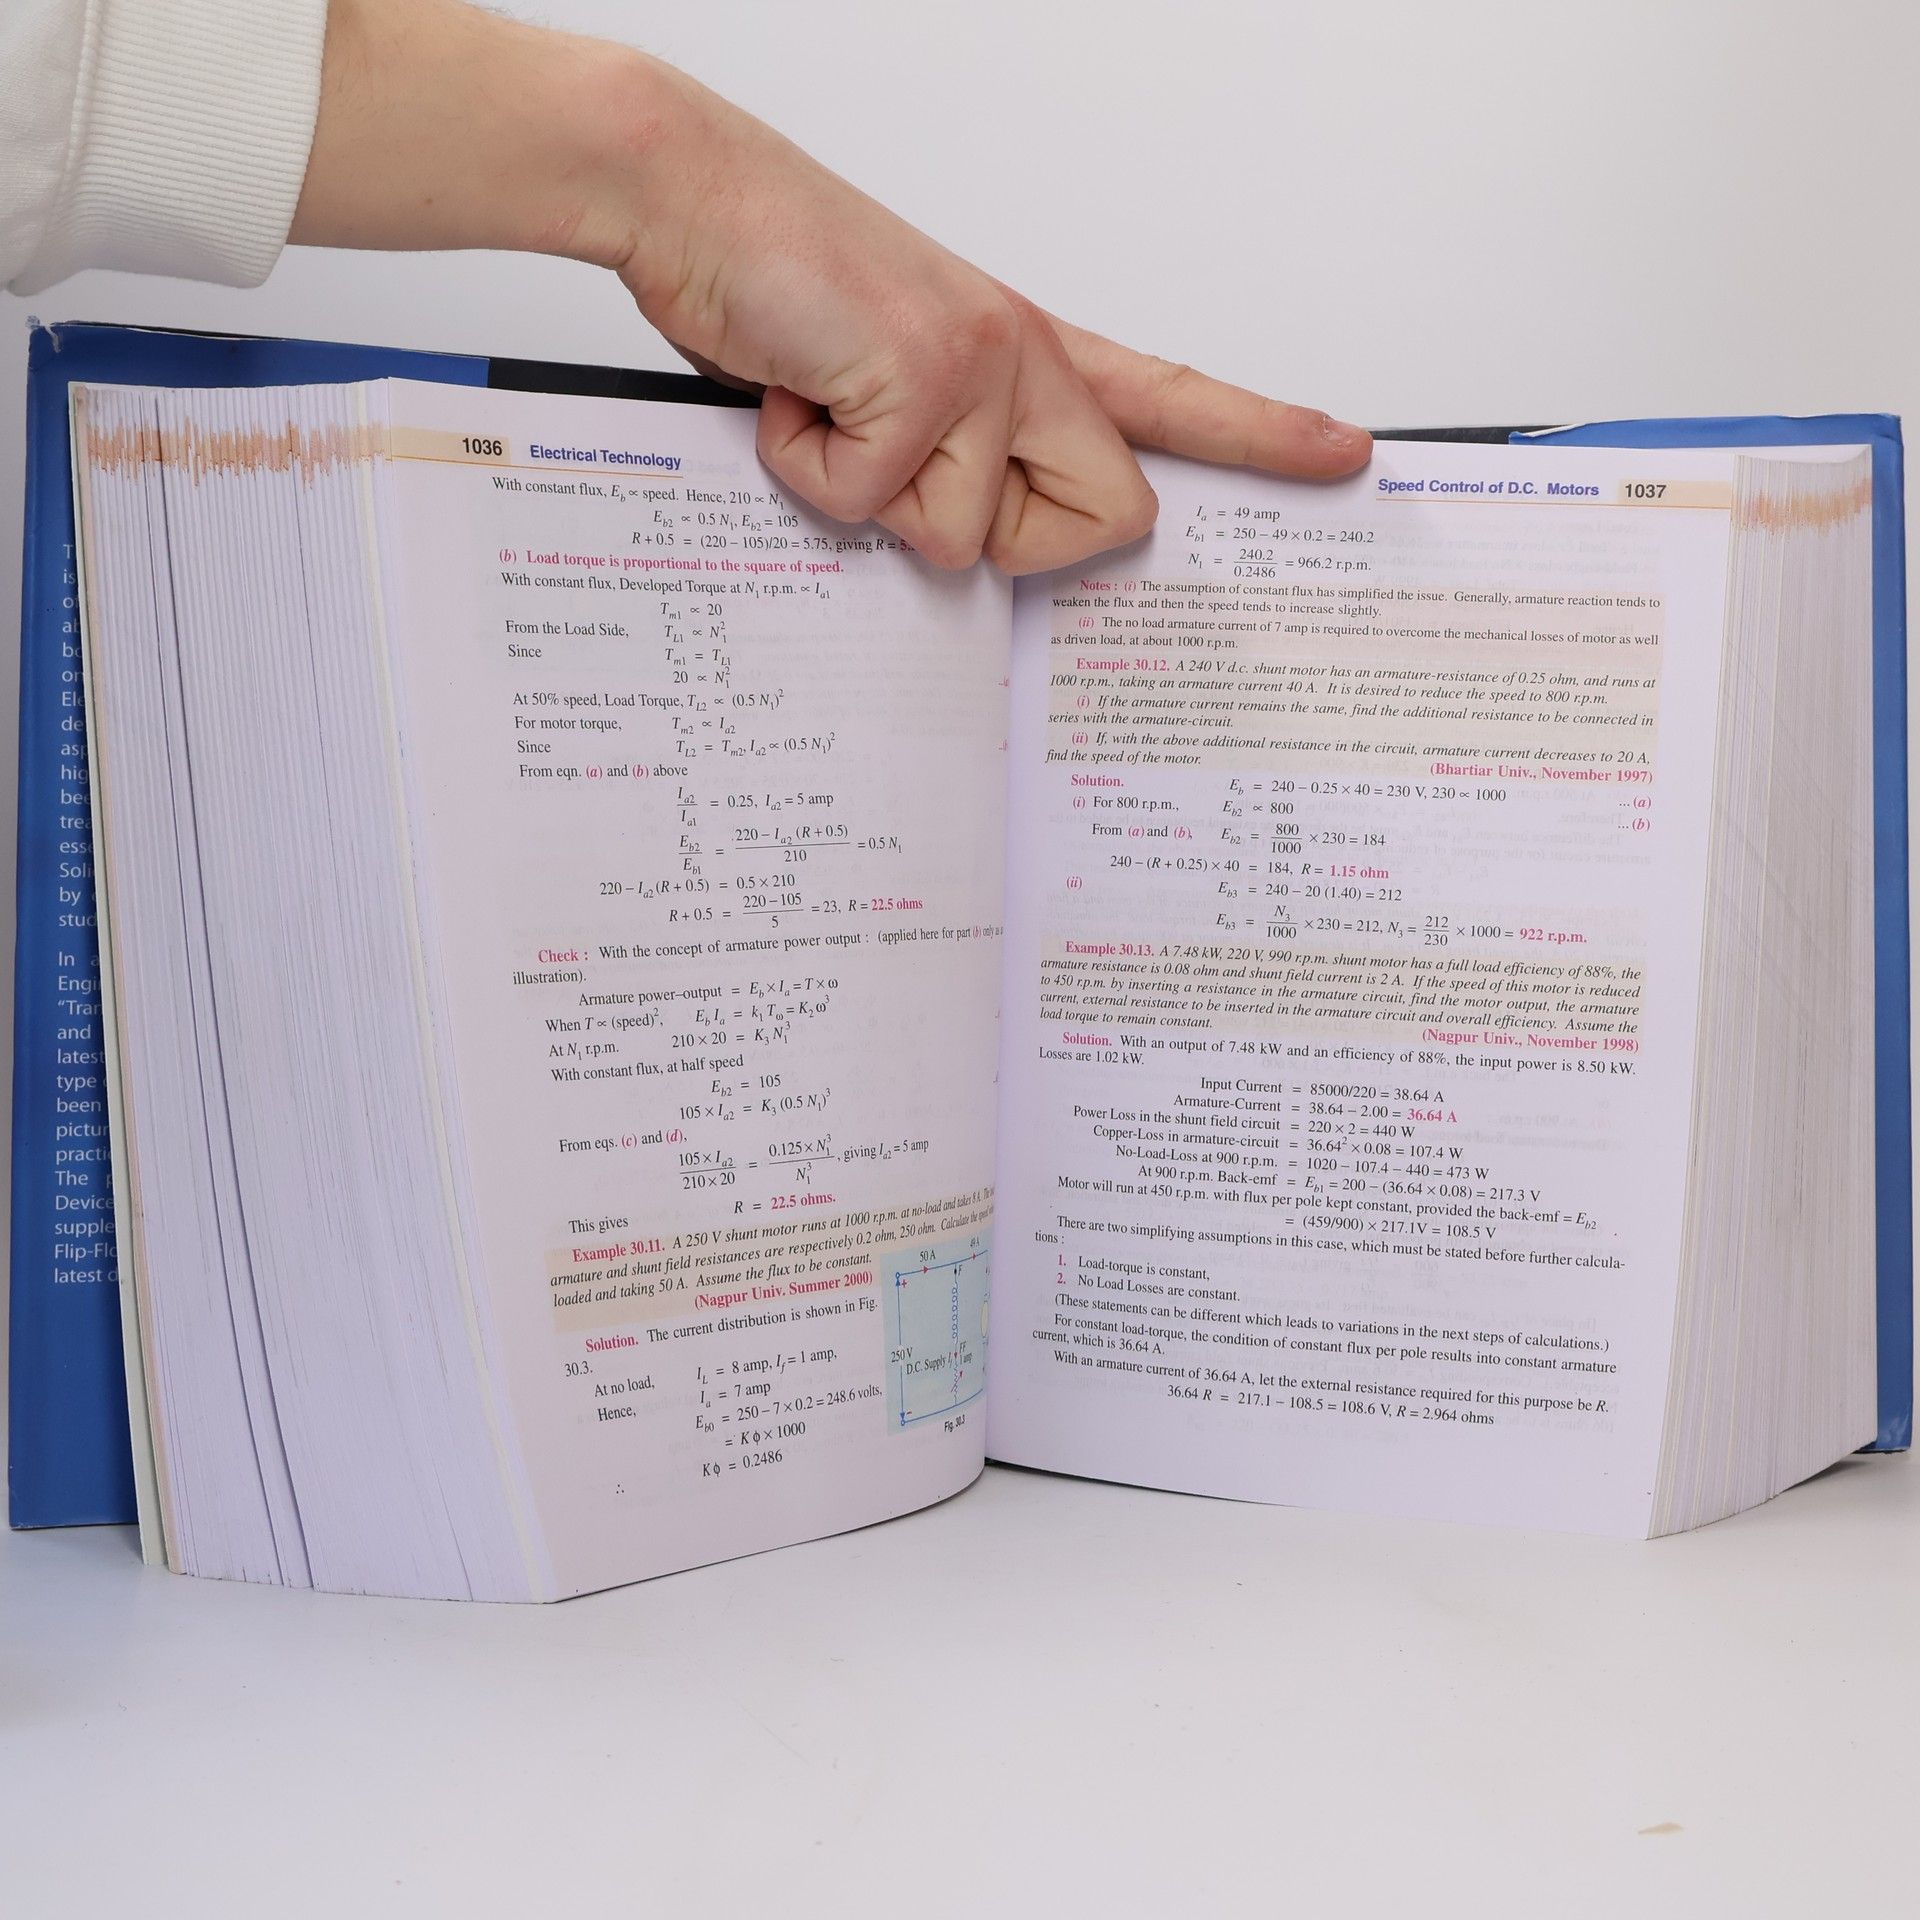 T
is
o
al
bo
on
Ele
de
asp
hig
bee
trea
esse
Soli
by
stud
In a
Engi
“Tran
and
latest
type
been
pictur
practi
The
Device
supple
Flip-Flo
latest d
1036 Electrical Technology
With constant flux, E_b ∝ speed. Hence, 210 ∝ N_1
E_b2 ∝ 0.5 N_1, E_b2 = 105
R + 0.5 = (220 – 105)/20 = 5.75, giving R = 5.
(b) Load torque is proportional to the square of speed.
With constant flux, Developed Torque at N_1 r.p.m. ∝ I_a1
T_m1 ∝ 20
From the Load Side, T_L1 ∝ N_1^2
Since T_m1 = T_L1
20 ∝ N_1^2
At 50% speed, Load Torque, T_L2 ∝ (0.5 N_1)^2
For motor torque, T_m2 ∝ I_a2
Since T_L2 = T_m2, I_a2 ∝ (0.5 N_1)^2
From eqn. (a) and (b) above
I_a2 / I_a1 = 0.25, I_a2 = 5 amp
E_b2 / E_b1 = 220 – I_a2 (R + 0.5) / 210 = 0.5 N_1
220 – I_a2 (R + 0.5) = 0.5 × 210
R + 0.5 = 220 – 105 / 5 = 23, R = 22.5 ohms
Check : With the concept of armature power output : (applied here for part (b) only as a
illustration).
Armature power–output = E_b × I_a = T × ω
When T ∝ (speed)^2, E_b I_a = k_1 T_ω = K_2 ω^3
At N_1 r.p.m. 210 × 20 = K_3 N_1^3
With constant flux, at half speed
E_b2 = 105
105 × I_a2 = K_3 (0.5 N_1)^3
From eqs. (c) and (d),
105 × I_a2 / 210 × 20 = 0.125 × N_1^3 / N_1^3 , giving I_a2 = 5 amp
This gives R = 22.5 ohms.
Example 30.11. A 250 V shunt motor runs at 1000 r.p.m. at no-load and takes 8 A. The
armature and shunt field resistances are respectively 0.2 ohm, 250 ohm. Calculate the speed
loaded and taking 50 A. Assume the flux to be constant.
(Nagpur Univ. Summer 2000)
Solution. The current distribution is shown in Fig.
30.3.
At no load, I_L = 8 amp, I_f = 1 amp,
Hence, I_a = 7 amp
E_b0 = 250 – 7 × 0.2 = 248.6 volts,
= K φ × 1000
∴ K φ = 0.2486
50 A 49 A
+
F
250 V
D.C. Supply
FF
1 amp
–
Fig. 30.3
Speed Control of D.C. Motors 1037
I_a = 49 amp
E_b1 = 250 – 49 × 0.2 = 240.2
N_1 = 240.2 / 0.2486 = 966.2 r.p.m.
Notes : (i) The assumption of constant flux has simplified the issue. Generally, armature reaction tends to
weaken the flux and then the speed tends to increase slightly.
(ii) The no load armature current of 7 amp is required to overcome the mechanical losses of motor as well
as driven load, at about 1000 r.p.m.
Example 30.12. A 240 V d.c. shunt motor has an armature-resistance of 0.25 ohm, and runs at
1000 r.p.m., taking an armature current 40 A. It is desired to reduce the speed to 800 r.p.m.
(i) If the armature current remains the same, find the additional resistance to be connected in
series with the armature-circuit.
(ii) If, with the above additional resistance in the circuit, armature current decreases to 20 A,
find the speed of the motor. (Bhartiar Univ., November 1997)
Solution. E_b = 240 – 0.25 × 40 = 230 V, 230 ∝ 1000 ... (a)
(i) For 800 r.p.m., E_b2 ∝ 800 ... (b)
From (a) and (b), E_b2 = 800 / 1000 × 230 = 184
240 – (R + 0.25) × 40 = 184, R = 1.15 ohm
(ii) E_b3 = 240 – 20 (1.40) = 212
E_b3 = N_3 / 1000 × 230 = 212, N_3 = 212 / 230 × 1000 = 922 r.p.m.
Example 30.13. A 7.48 kW, 220 V, 990 r.p.m. shunt motor has a full load efficiency of 88%, the
armature resistance is 0.08 ohm and shunt field current is 2 A. If the speed of this motor is reduced
to 450 r.p.m. by inserting a resistance in the armature circuit, find the motor output, the armature
current, external resistance to be inserted in the armature circuit and overall efficiency. Assume the
load torque to remain constant. (Nagpur Univ., November 1998)
Solution. With an output of 7.48 kW and an efficiency of 88%, the input power is 8.50 kW.
Losses are 1.02 kW.
Input Current = 85000/220 = 38.64 A
Armature-Current = 38.64 – 2.00 = 36.64 A
Power Loss in the shunt field circuit = 220 × 2 = 440 W
Copper-Loss in armature-circuit = 36.64^2 × 0.08 = 107.4 W
No-Load-Loss at 900 r.p.m. = 1020 – 107.4 – 440 = 473 W
At 900 r.p.m. Back-emf = E_b1 = 200 – (36.64 × 0.08) = 217.3 V
Motor will run at 450 r.p.m. with flux per pole kept constant, provided the back-emf = E_b2
= (459/900) × 217.1V = 108.5 V
There are two simplifying assumptions in this case, which must be stated before further calcula-
tions :
1. Load-torque is constant,
2. No Load Losses are constant.
(These statements can be different which leads to variations in the next steps of calculations.)
For constant load-torque, the condition of constant flux per pole results into constant armature
current, which is 36.64 A.
With an armature current of 36.64 A, let the external resistance required for this purpose be R.
36.64 R = 217.1 – 108.5 = 108.6 V, R = 2.964 ohms